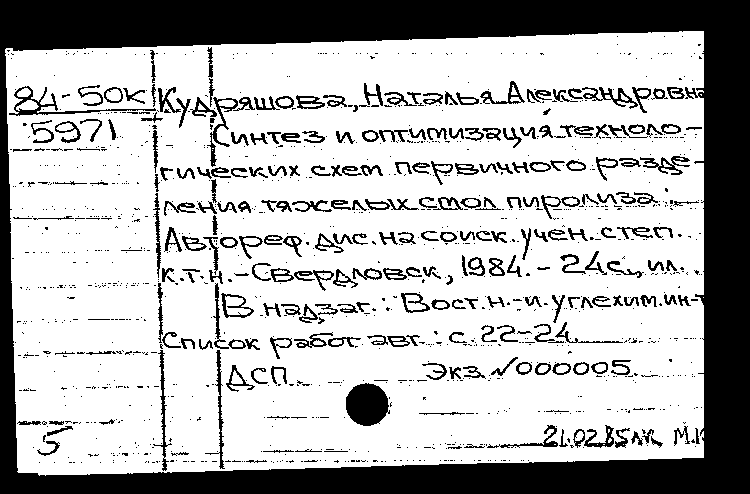 84-50к Кудряшова, Наталья Александровна
5971 Синтез и оптимизация техноло-
гических схем первичного разде-
ления тяжелых смол пиролиза:
Автореф. дис. на соиск. учен. степ.
к.т.н. - Свердловск, 1984. - 24с., ил.
В надзаг.: Вост. н.-и. углехим. ин-т
Список работ авт.: с. 22-24.
ДСП. Экз. №000005.
5
21.02.85